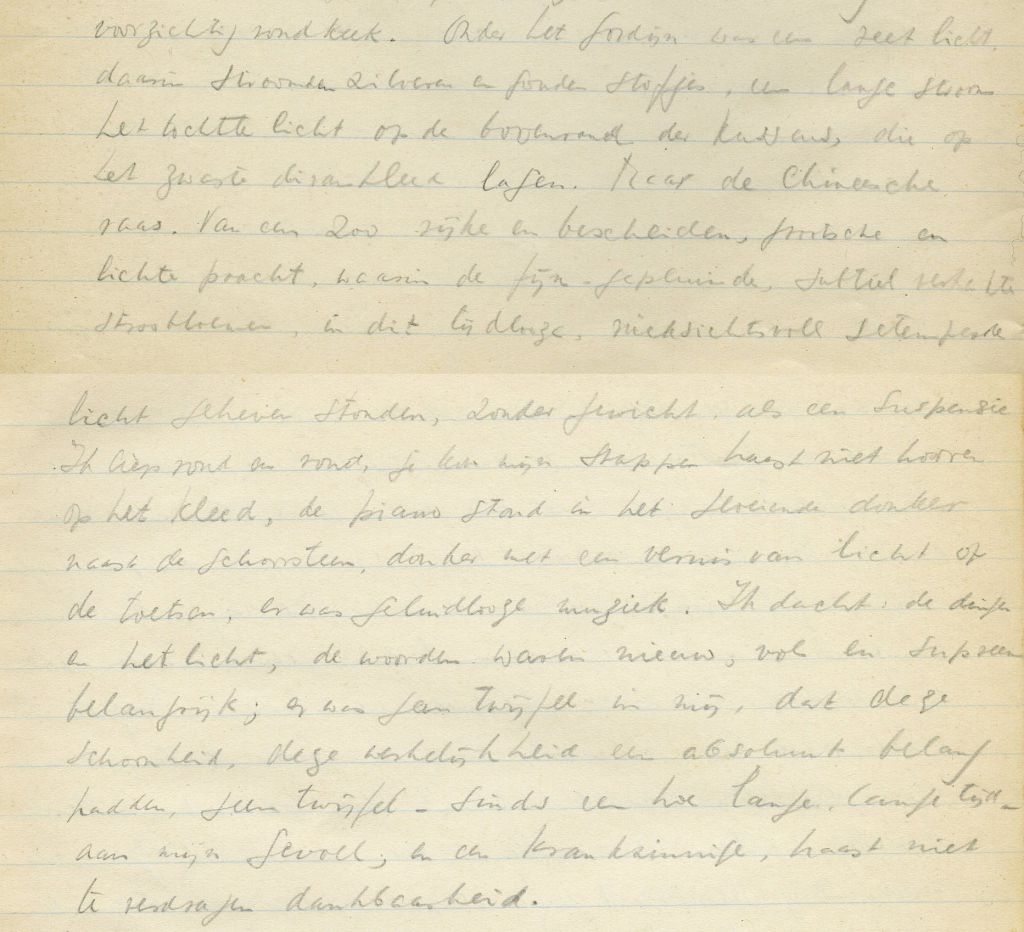 voorzichtig rondkeek. Onder het gordijn was een reet licht,
daarin stroomden zilveren en gouden stofjes, een lange stroom
het tochtte licht op de bovenrand der kussens, die op
het zwarte divankleed lagen. Maar de Chineesche
vaas. Van een zoo rijke en bescheiden, grootsche en
lichte pracht, waarin de fijn-gepluimde, subtiel
stroobloemen, in dit tijdlooze, getemperde
licht geheven stonden, zonder gewicht, als een suspensie
Ik liep rond en rond, je kon mijn stappen haast niet hooren
op het kleed, de piano stond in het donker
naast de schoorsteen, donker met een vernis van licht op
de toetsen, er was geluidlooze muziek. Ik dacht: de dingen
en het licht, de woorden waren nieuw, vol en supreem
belangrijk; er was geen twijfel in mij, dat deze
schoonheid, deze werkelijkheid een absoluut belang
hadden, geen twijfel – sinds een hoe lange, lange tijd –
aan mijn gevoel; en een krankzinnige, haast niet
te verdragen dankbaarheid.